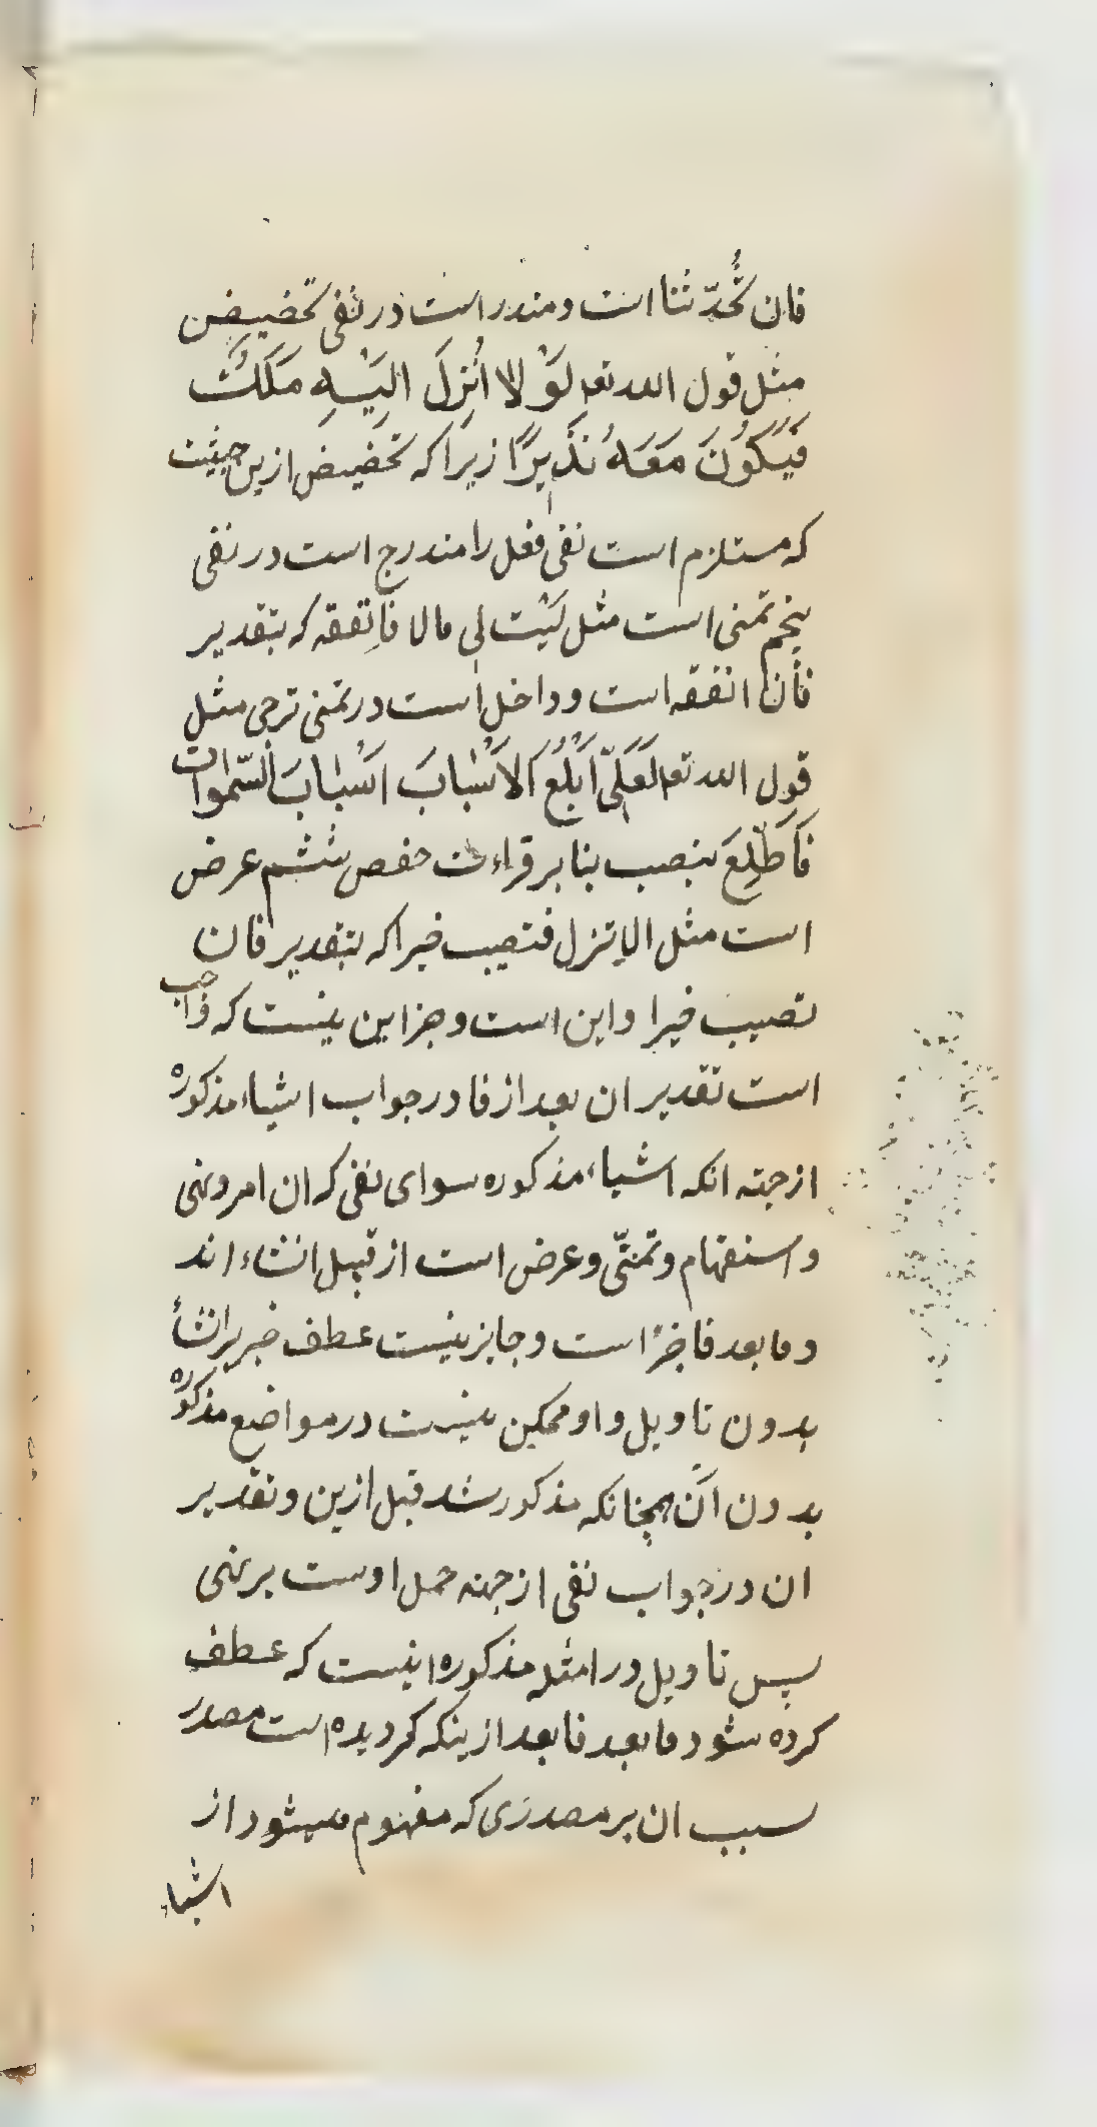 فان تُحَدّثنا است و مندر است در نفی تحضیض
مثل قول الله تعا لَوْ لا اُنْزِلَ اِلَیْهِ مَلَکٌ
فَیَکُونَ مَعَهُ نَذیرًا زیرا که تحضیض ازین حیثیت
که مستلزم است نفی فعل را مندرج است در نفی
پنجم تمنی است مثل لَیْت لی مالا فاَنفقه که بتقدیر
فأن انفقه است و داخل است در تمنی ترجی مثل
قول الله تعا لَعَلّی اَبْلُغُ الاَسْبابَ اَسْبابَ السّموات
فَاَطَّلِعَ بنصب بنا بر قراءت حفص ششم عرض
است مثل الا تنزل فتصیب خیرا که بتقدیر فان
تصیب خیرا و این است و جز این نیست که واجب
است تقدیر ان بعد از فا در جواب اشیاء مذکوره
از جهته انکه اشیاء مذکوره سوای نفی که ان امر و نهی
و استفهام و تمنّی و عرض است از قبیل انشاء اند
و ما بعد فا خبر است و جایز نیست عطف خبر بر انشأ
بدون تاویل و او ممکن نیست در مواضع مذکوره
بدون آن همچنانکه مذکور شد قبل ازین و تقدیر
ان در جواب نفی از جهته حمل اوست بر نهی
پس تاویل در امثله مذکوره اینست که عطف
کرده شود ما بعد فا بعد از ینکه کردیده است مصدر
بسبب ان بر مصدری که مفهوم میشود از
اشیاء